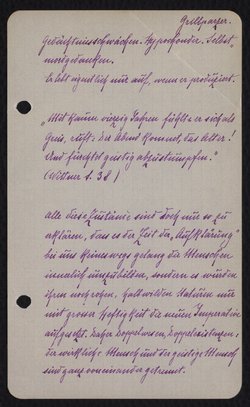 Grillparzer.
Gedächtnisschwächen. Hypochonder. Selbst-
mordgedanken.
Er lebt eigentlich nur auf, wenn er produziert.
„Mit kaum vierzig Jahren fühlt er sich als
Greis, ruft: Der Abend kommt, das Alter!
Und fürchtet geistig abzustumpfen."
(Wittner S. 38)
Alle diese Zustände sind doch nur so zu
erklären, dass es der Zeit der „Aufklärung"
bei uns keineswegs gelang die Menschen
innerlich umzubilden, sondern es wurden
ihren noch rohen, halbwilden Naturen nur
mit grosser Heftigkeit die neuen Imperative
aufgesetzt. Daher Doppelwesen, Doppelexistenzen,
der wirkliche Mensch und der geistige Mensch
sind ganz voneinander getrennt.